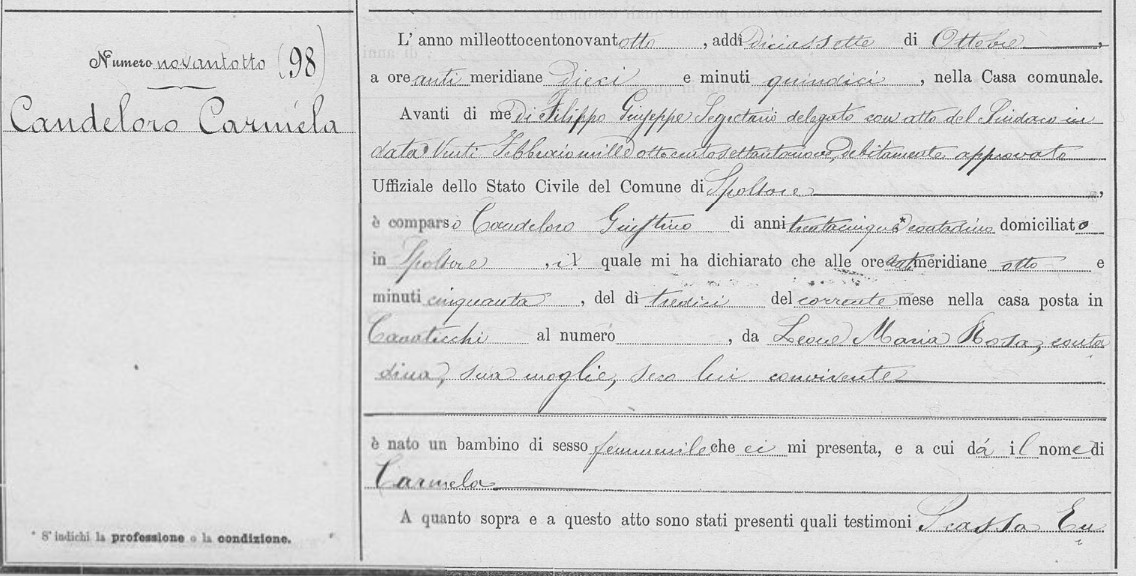 Numero novantotto (98)
Candeloro Carmela
L' anno milleottocentonovantotto, addì Diciassette di Ottobre,
a ore antimeridiane Dieci e minuti quindici, nella Casa comunale.
Avanti di me Di Filippo Giuseppe Segretario delegato con atto del Sindaco in
data Venti Febbraio mille ottocento settantanove, debitamente approvato
Uffiziale dello Stato Civile del Comune di Spoltore,
è comparso Candeloro Giustino di anni trentacinque * contadino domiciliato
in Spoltore, il quale mi ha dichiarato che alle ore antimeridiane otto e
minuti cinquanta, del dì tredici del corrente mese nella casa posta in
al numero, da Leone Maria Rosa, conta
dina, sua moglie, seco lui convivente
è nato un bambino di sesso femminile che ei mi presenta, e a cui dà il nome di
Carmela
A quanto sopra e a questo atto sono stati presenti quali testimoni Scassa Eu
* S' indichi la professione o la condizione.